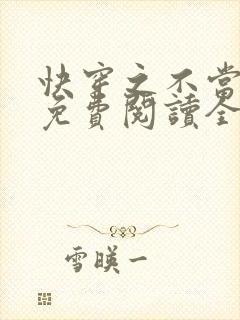 快穿之不當
免費閱讀全
雪暎一